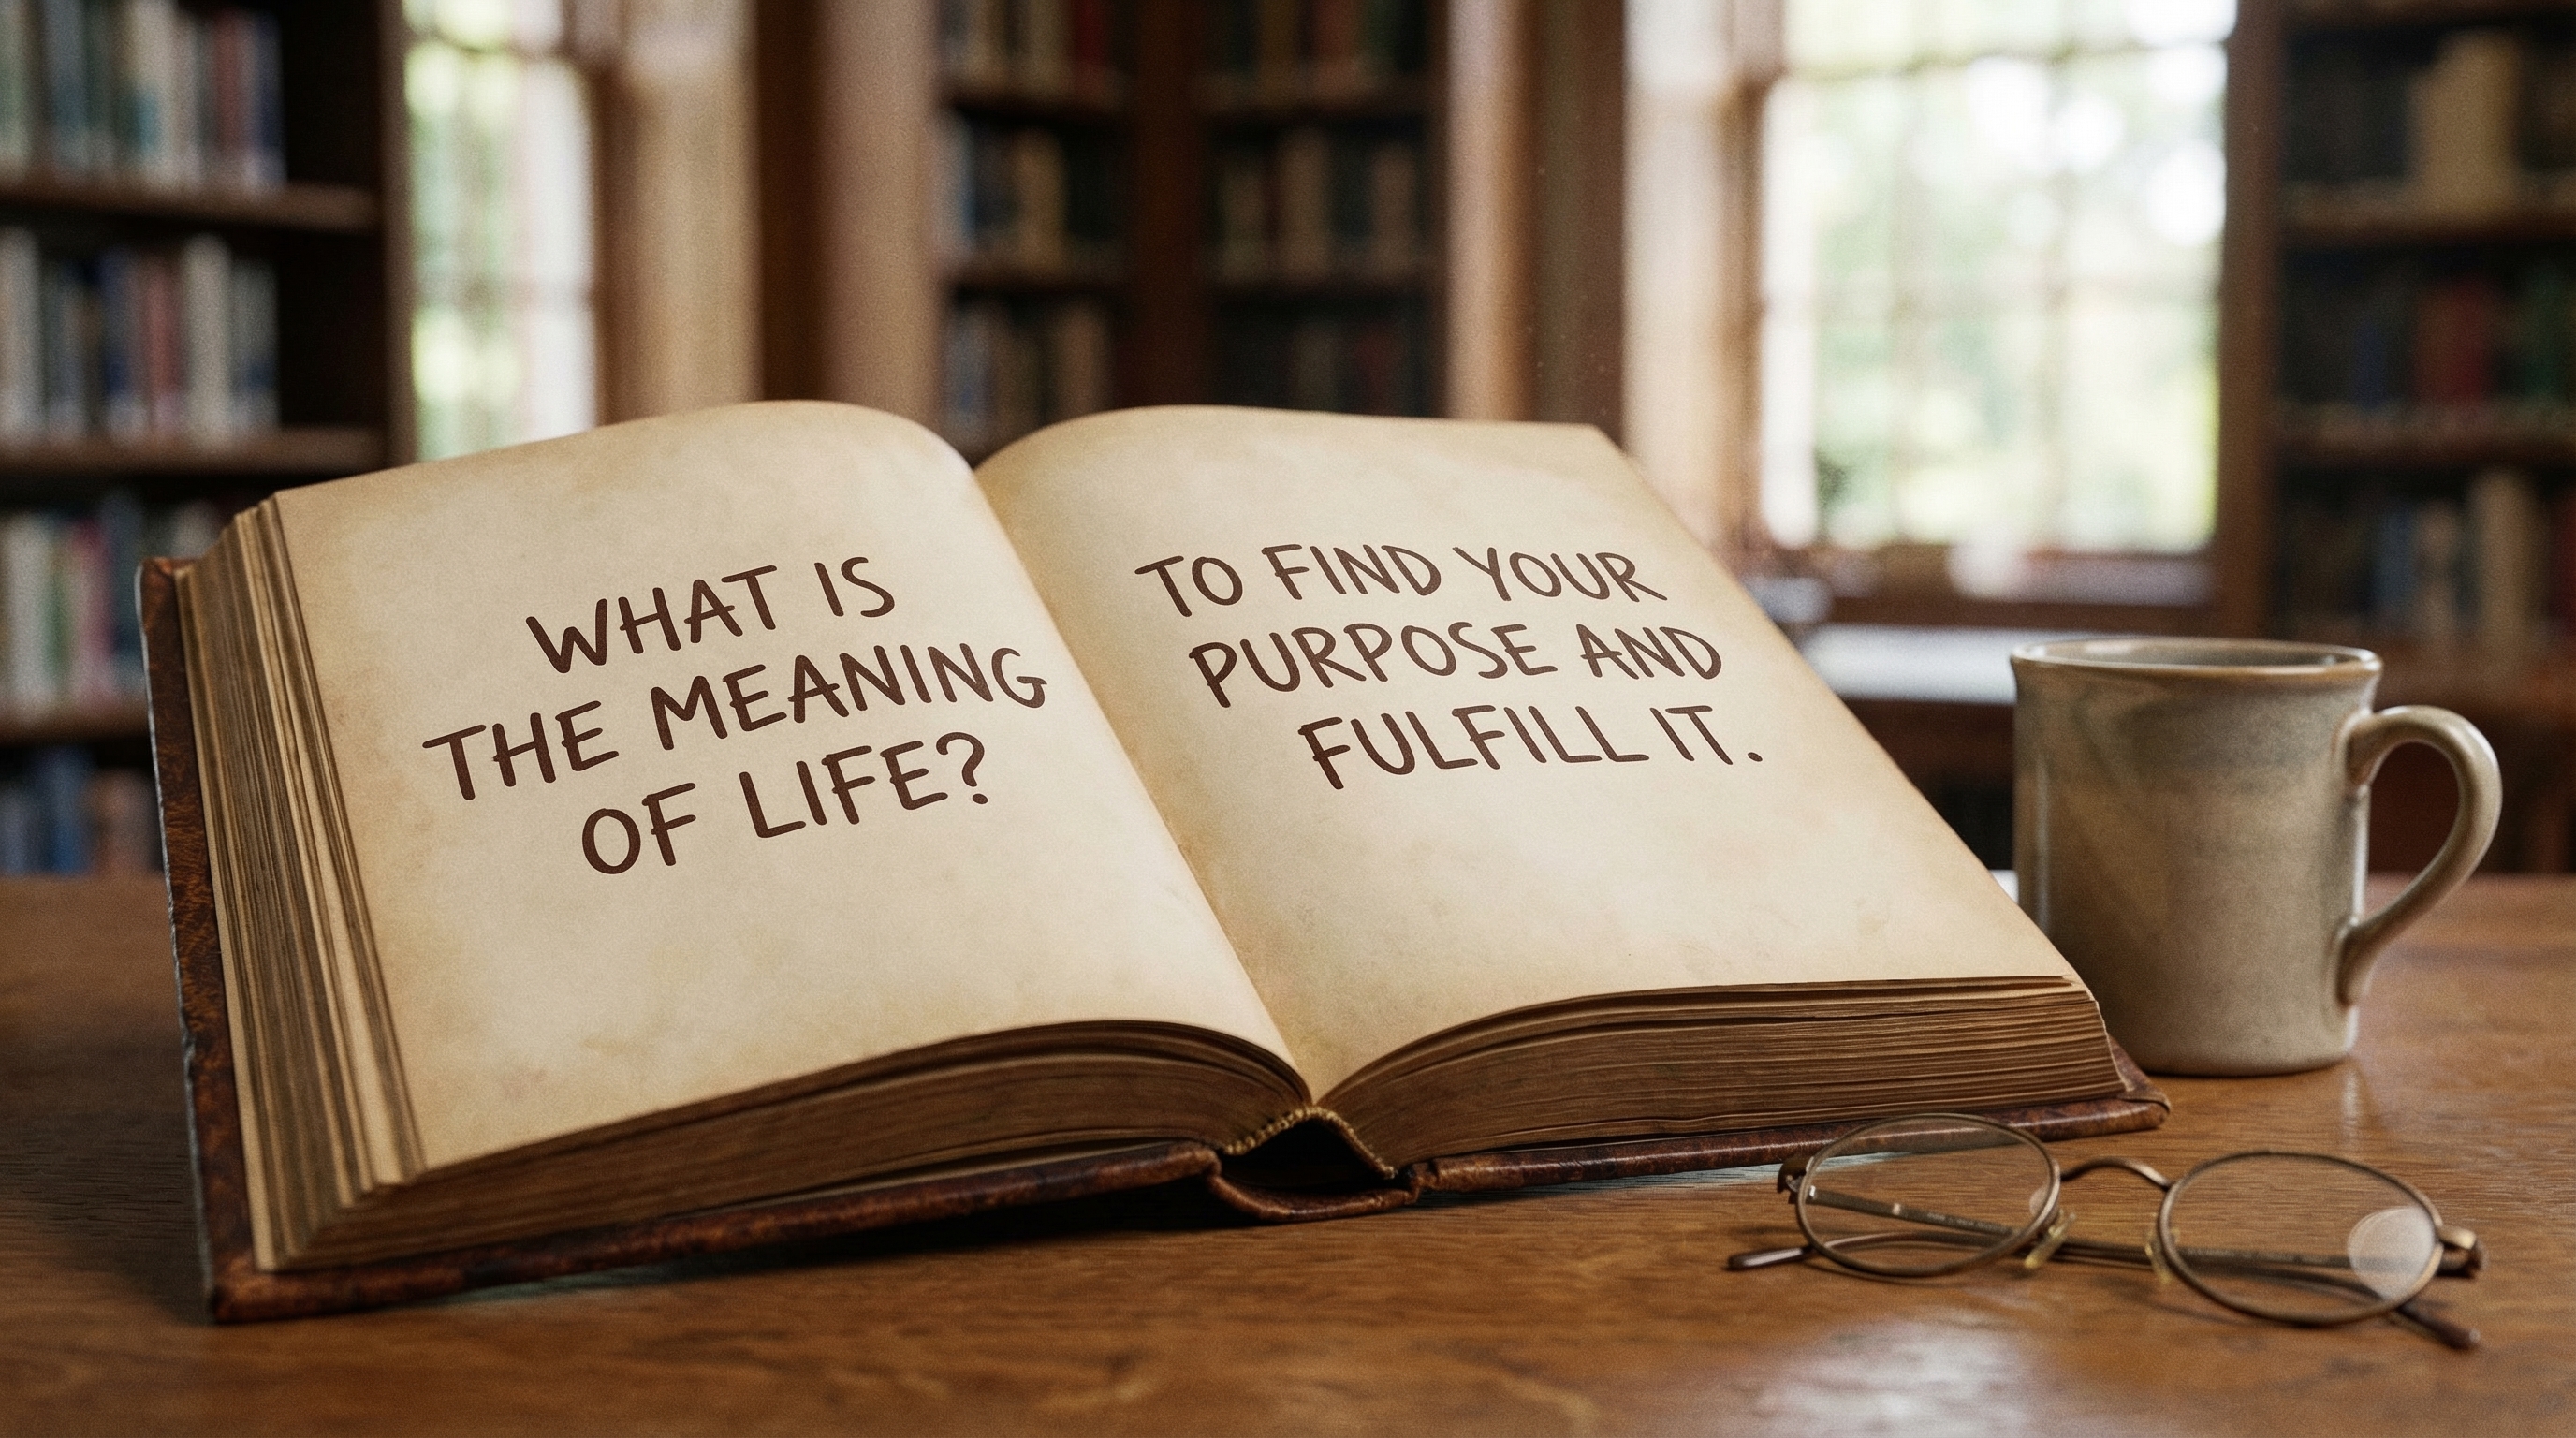 WHAT IS
THE MEANING
OF LIFE?
TO FIND YOUR
PURPOSE AND
FULFILL IT.